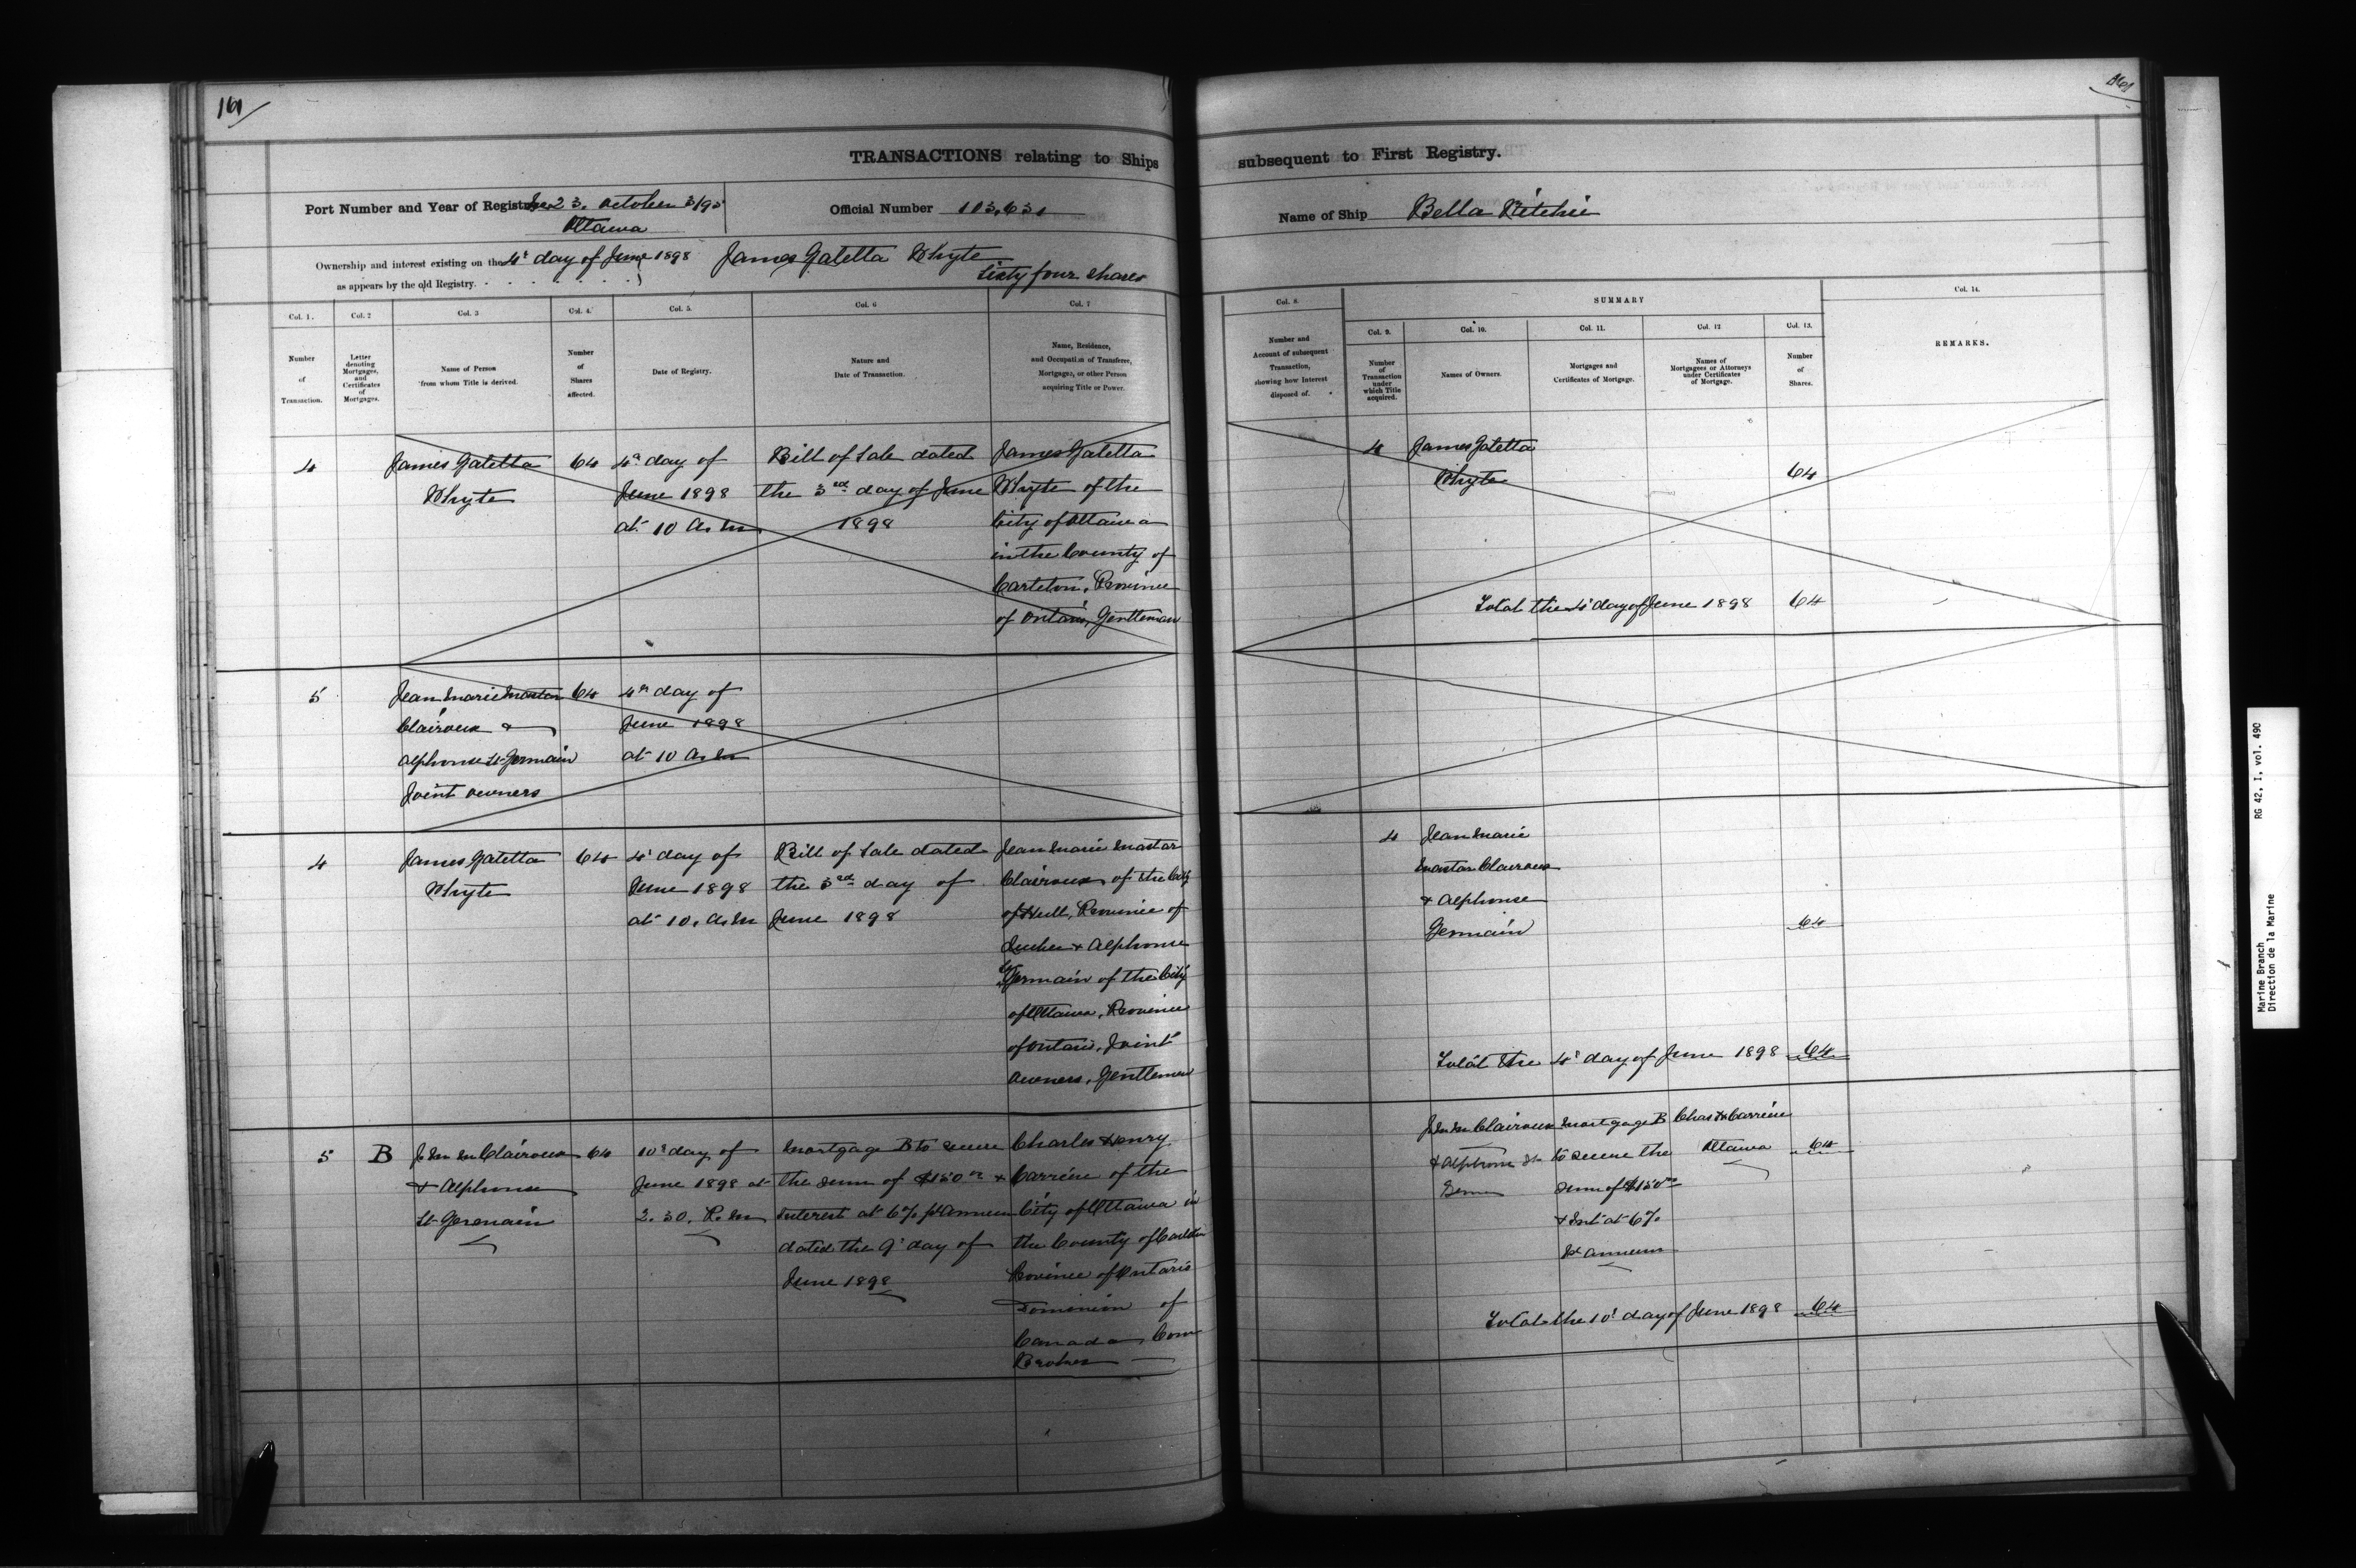 161
161
TRANSACTIONS relating to Ships subsequent to First Registry.
Port Number and Year of Registry No 23. October 3/95
Ottawa
Official Number 103,631
Name of Ship Bella Ritchie
Ownership and interest existing on the 4th day of June 1898 James Galetta Whyte
as appears by the old Registry. Sixty four shares
Col. 1.
Number
of
Transaction.
Col. 2
Letter
denoting
Mortgages,
and
Certificates
of
Mortgages.
Col. 3
Name of Person
from whom Title is derived.
Col. 4.
Number
of
Shares
affected.
Col. 5.
Date of Registry.
Col. 6
Nature and
Date of Transaction.
Col. 7
Name, Residence,
and Occupation of Transferee,
Mortgagee, or other Person
acquiring Title or Power.
Col. 8.
Number and
Account of subsequent
Transaction,
showing how Interest
disposed of.
SUMMARY
Col. 9.
Number
of
Transaction
under
which Title
acquired.
Col. 10.
Names of Owners.
Col. 11.
Mortgages and
Certificates of Mortgage.
Col. 12
Names of
Mortgagees or Attorneys
under Certificates
of Mortgage.
Col. 13.
Number
of
Shares.
Col. 14.
REMARKS.
4
James Galetta
Whyte
64
4th day of
June 1898
at 10 A.M
Bill of Sale dated
the 3rd day of June
1898
James Galetta
Whyte of the
City of Ottawa
in the County of
Carleton, Province
of Ontario, Gentleman
4
James Galetta
Whyte
64
Total the 4th day of June 1898 64
5
Jean Marie Mastar
Clairoux &
Alphonse St Germain
Joint owners
64
4th day of
June 1898
at 10 A.M
4
James Galetta
Whyte
64
4th day of
June 1898
at 10. A.M
Bill of Sale dated
the 3rd day of
June 1898
Jean Marie Mastar
Clairoux of the City
of Hull, Province of
Quebec & Alphonse
St Germain of the City
of Ottawa, Province
of Ontario, Joint
owners, Gentlemen
4
Jean Marie
Mastar Clairoux
& Alphonse
Germain
64
Total the 4th day of June 1898 64
5
B
J. M M Clairoux
& Alphonse
St Germain
64
10th day of
June 1898 at
2.30. P.M
Mortgage B to secure
the sum of $150 00 &
Interest at 6% pr annum
dated the 9th day of
June 1898
Charles Henry
Carrière of the
City of Ottawa in
the County of Carleton
Province of Ontario
Dominion of
Canada Com
Broker
J. M M Clairoux
& Alphonse St
Germ
Mortgage B
to secure the
sum of $150 00
& Int at 6%
pr annum
Chas H Carrière
Ottawa
64
Total the 10th day of June 1898 64
Marine Branch RG 42, I, vol. 490
Direction de la Marine